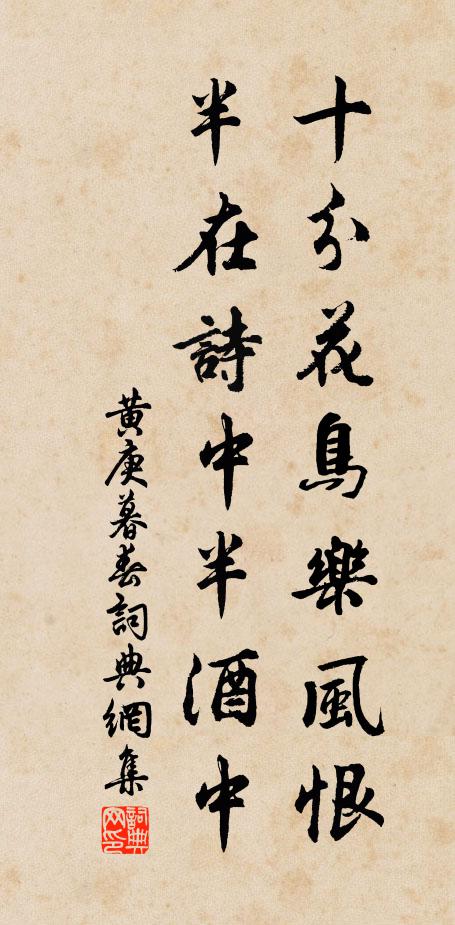 十分花鳥樂風恨
半在詩中半酒中
黃庚暮春詞典網集
詞典網印